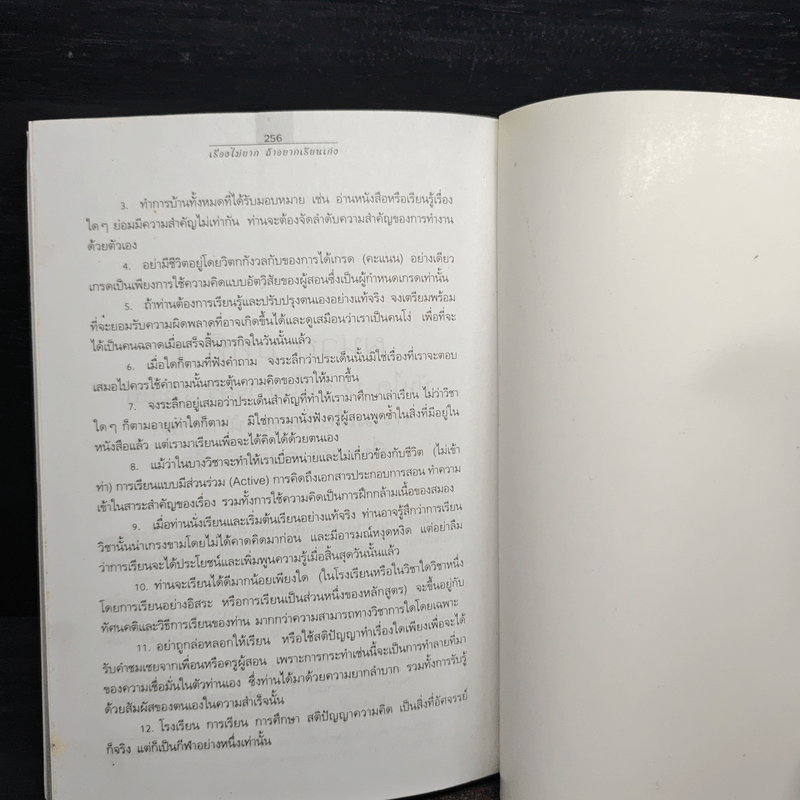 256
เรื่องไม่ยาก ถ้าอยากเรียนเก่ง
3. ทำการบ้านทั้งหมดที่ได้รับมอบหมาย เช่น อ่านหนังสือหรือเรียนรู้เรื่อง
ใดๆ ย่อมมีความสำคัญไม่เท่ากัน ท่านจะต้องจัดลำดับความสำคัญของการทำงาน
ด้วยตัวเอง
4. อย่ามีชีวิตอยู่โดยวิตกกังวลกับของการได้เกรด (คะแนน) อย่างเดียว
เกรดเป็นเพียงการใช้ความคิดแบบอัตวิสัยของผู้สอนซึ่งเป็นผู้กำหนดเกรดเท่านั้น
5. ถ้าท่านต้องการเรียนรู้และปรับปรุงตนเองอย่างแท้จริง จงเตรียมพร้อม
ที่จะยอมรับความผิดพลาดที่อาจเกิดขึ้นได้และดูเสมือนว่าเราเป็นคนโง่ เพื่อที่จะ
ได้เป็นคนฉลาดเมื่อเสร็จสิ้นภารกิจในวันนั้นแล้ว
6. เมื่อใดก็ตามที่ฟังคำถาม จงระลึกว่าประเด็นนั้นมิใช่เรื่องที่เราจะตอบ
เสมอไปควรใช้คำถามนั้นกระตุ้นความคิดของเราให้มากขึ้น
7. จงระลึกอยู่เสมอว่าประเด็นสำคัญที่ทำให้เรามาศึกษาเล่าเรียน ไม่ว่าวิชา
ใดๆ ก็ตามอายุเท่าใดก็ตาม มิใช่การมานั่งฟังครูผู้สอนพูดซ้ำในสิ่งที่มีอยู่ใน
หนังสือแล้ว แต่เรามาเรียนเพื่อจะได้คิดได้ด้วยตนเอง
8. แม้ว่าในบางวิชาจะทำให้เราเบื่อหน่ายและไม่เกี่ยวข้องกับชีวิต (ไม่เข้า
ท่า) การเรียนแบบมีส่วนร่วม (Active) การคิดถึงเอกสารประกอบการสอน ทำความ
เข้าในสาระสำคัญของเรื่อง รวมทั้งการใช้ความคิดเป็นการฝึกกล้ามเนื้อของสมอง
9. เมื่อท่านนั่งเรียนและเริ่มต้นเรียนอย่างแท้จริง ท่านอาจรู้สึกว่าการเรียน
วิชานั้นน่าเกรงขามโดยไม่ได้คาดคิดมาก่อน และมีอารมณ์หงุดหงิด แต่อย่าลืม
ว่าการเรียนจะได้ประโยชน์และเพิ่มพูนความรู้เมื่อสิ้นสุดวันนั้นแล้ว
10. ท่านจะเรียนได้ดีมากน้อยเพียงใด (ในโรงเรียนหรือในวิชาใดวิชาหนึ่ง
โดยการเรียนอย่างอิสระ หรือการเรียนเป็นส่วนหนึ่งของหลักสูตร) จะขึ้นอยู่กับ
ทัศนคติและวิธีการเรียนของท่าน มากกว่าความสามารถทางวิชาการใดโดยเฉพาะ
11. อย่าถูกล่อหลอกให้เรียน หรือใช้สติปัญญาทำเรื่องใดเพียงเพื่อจะได้
รับคำชมเชยจากเพื่อนหรือครูผู้สอน เพราะการกระทำเช่นนี้จะเป็นการทำลายที่มา
ของความเชื่อมั่นในตัวท่านเอง ซึ่งท่านได้มาด้วยความยากลำบาก รวมทั้งการรับรู้
ด้วยสัมผัสของตนเองในความสำเร็จนั้น
12. โรงเรียน การเรียน การศึกษา สติปัญญาความคิด เป็นสิ่งที่อัศจรรย์
ก็จริง แต่ก็เป็นกีฬาอย่างหนึ่งเท่านั้น